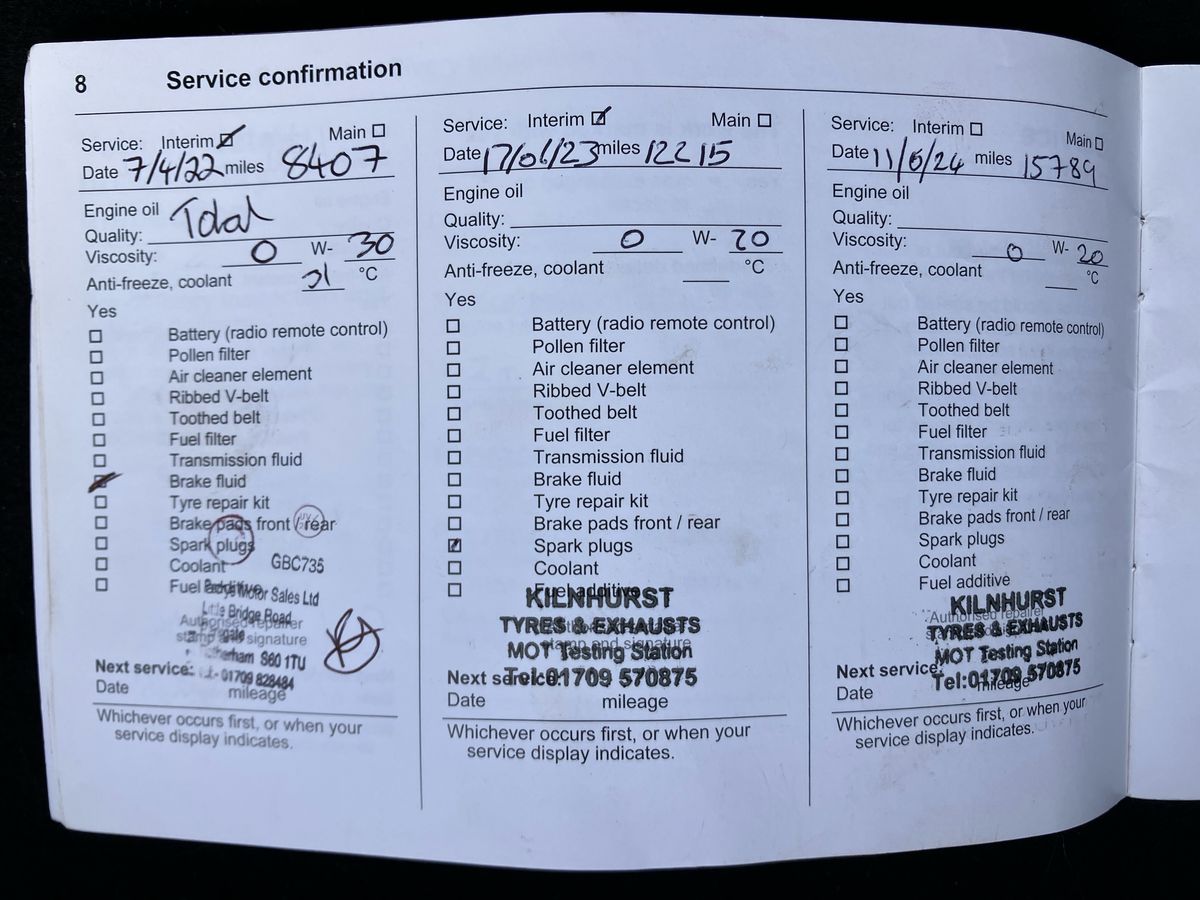 8 Service confirmation
Service: Interim Main
Date 7/4/22 miles 8407
Engine oil Total
Quality:
Viscosity: 0 W- 30
Anti-freeze, coolant °C
Yes
Battery (radio remote control)
Pollen filter
Air cleaner element
Ribbed V-belt
Toothed belt
Fuel filter
Transmission fluid
Brake fluid
Tyre repair kit
Brake pads front / rear
Spark plugs
Coolant GBC735
Fuel additive Motor Sales Ltd
Bridge Road
Authorised repairer
stamp and signature
Rotherham S60 1TU
Next service: 01709 828484
Date mileage
Whichever occurs first, or when your
service display indicates.
Service: Interim Main
Date 17/01/23 miles 12215
Engine oil
Quality:
Viscosity: 0 W- 20
Anti-freeze, coolant °C
Yes
Battery (radio remote control)
Pollen filter
Air cleaner element
Ribbed V-belt
Toothed belt
Fuel filter
Transmission fluid
Brake fluid
Tyre repair kit
Brake pads front / rear
Spark plugs
Coolant
Fuel additive
KILNHURST
TYRES & EXHAUSTS
stamp and signature
MOT Testing Station
Next service:
Tel:01709 570875
Date mileage
Whichever occurs first, or when your
service display indicates.
Service: Interim Main
Date 11/6/24 miles 15789
Engine oil
Quality:
Viscosity: 0 W- 20
Anti-freeze, coolant °C
Yes
Battery (radio remote control)
Pollen filter
Air cleaner element
Ribbed V-belt
Toothed belt
Fuel filter
Transmission fluid
Brake fluid
Tyre repair kit
Brake pads front / rear
Spark plugs
Coolant
Fuel additive
KILNHURST
Authorised repairer
TYRES & EXHAUSTS
MOT Testing Station
Next service:
Tel:01709 570875
Date mileage
Whichever occurs first, or when your
service display indicates.